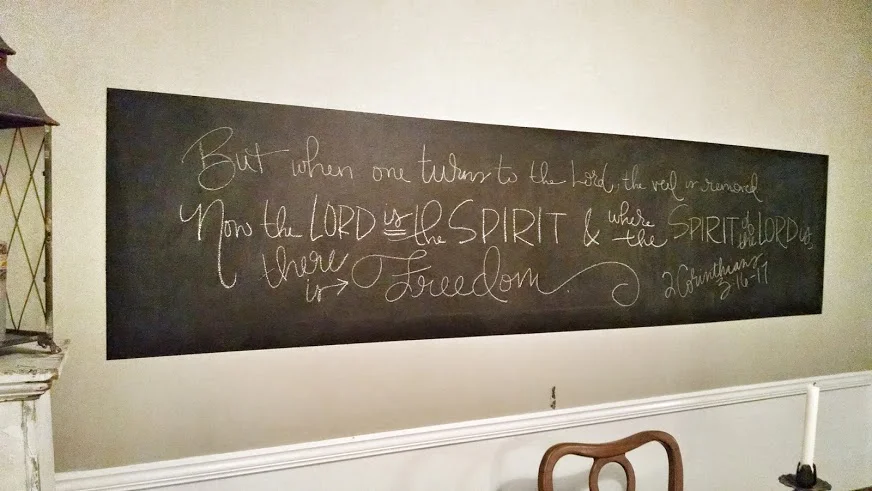 But when one turns to the Lord, the veil is removed
Now the LORD is the SPIRIT & where the SPIRIT of the LORD is,
there is → Freedom.
2 Corinthians 3:16-17